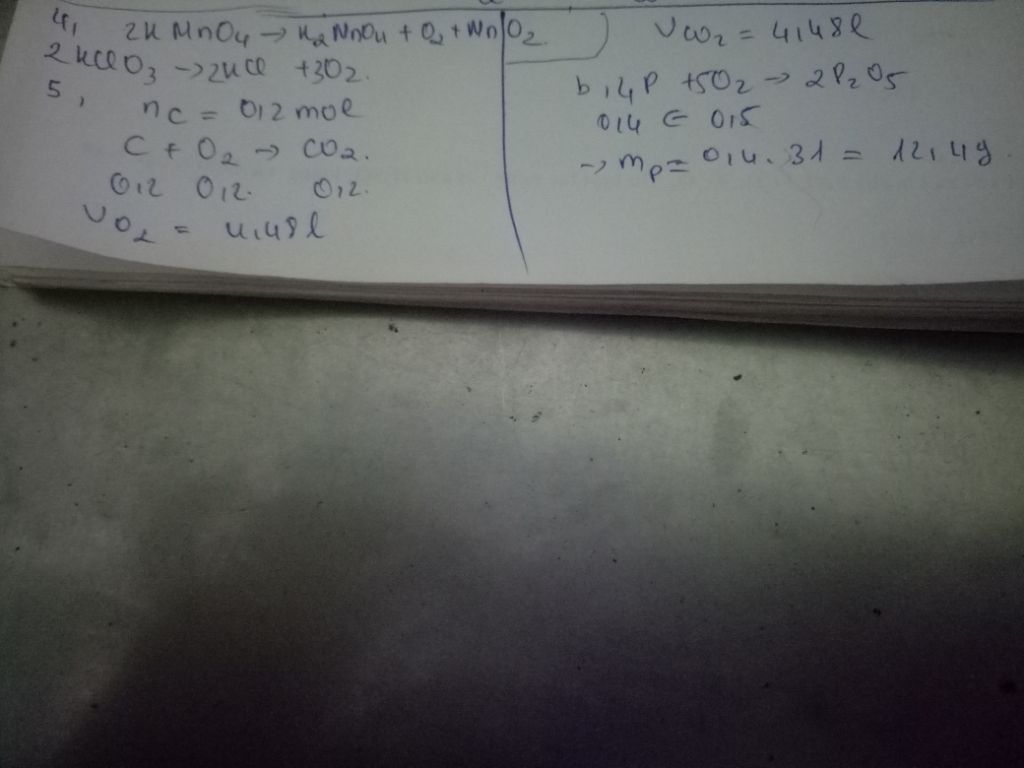 4, 2KMnO4 → K2MnO4 + O2 + MnO2
2KClO3 → 2KCl + 3O2.
5,
nC = 0,2 mol
C + O2 → CO2.
0,2 0,2. 0,2.
VO2 = 4,48l
VCO2 = 4,48l
b, 4P + 5O2 → 2P2O5
0,4 ← 0,5
→ mP = 0,4. 31 = 12,4g